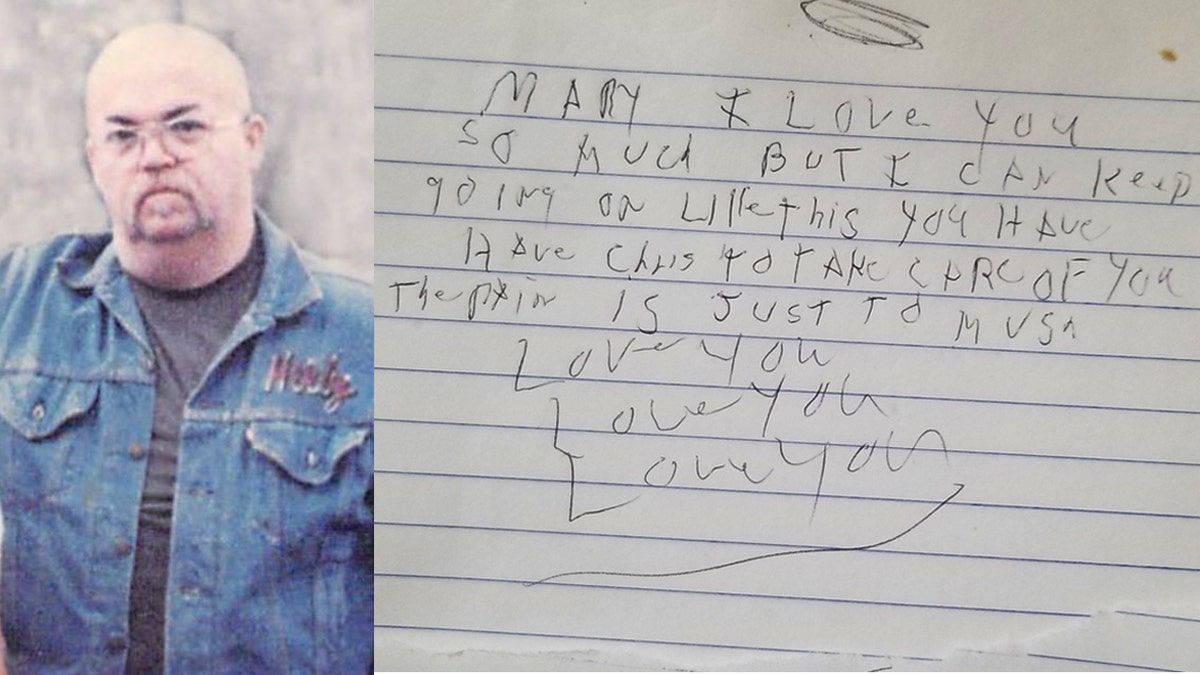 MARY I LOVE YOU
SO MUCH BUT I CAN KEEP
going on LIKE this YOU HAVE
HAVE Chris TO TAKE CARE OF YOU
The pAin IS JUST TO MUSh
Love You
Love You
Love You